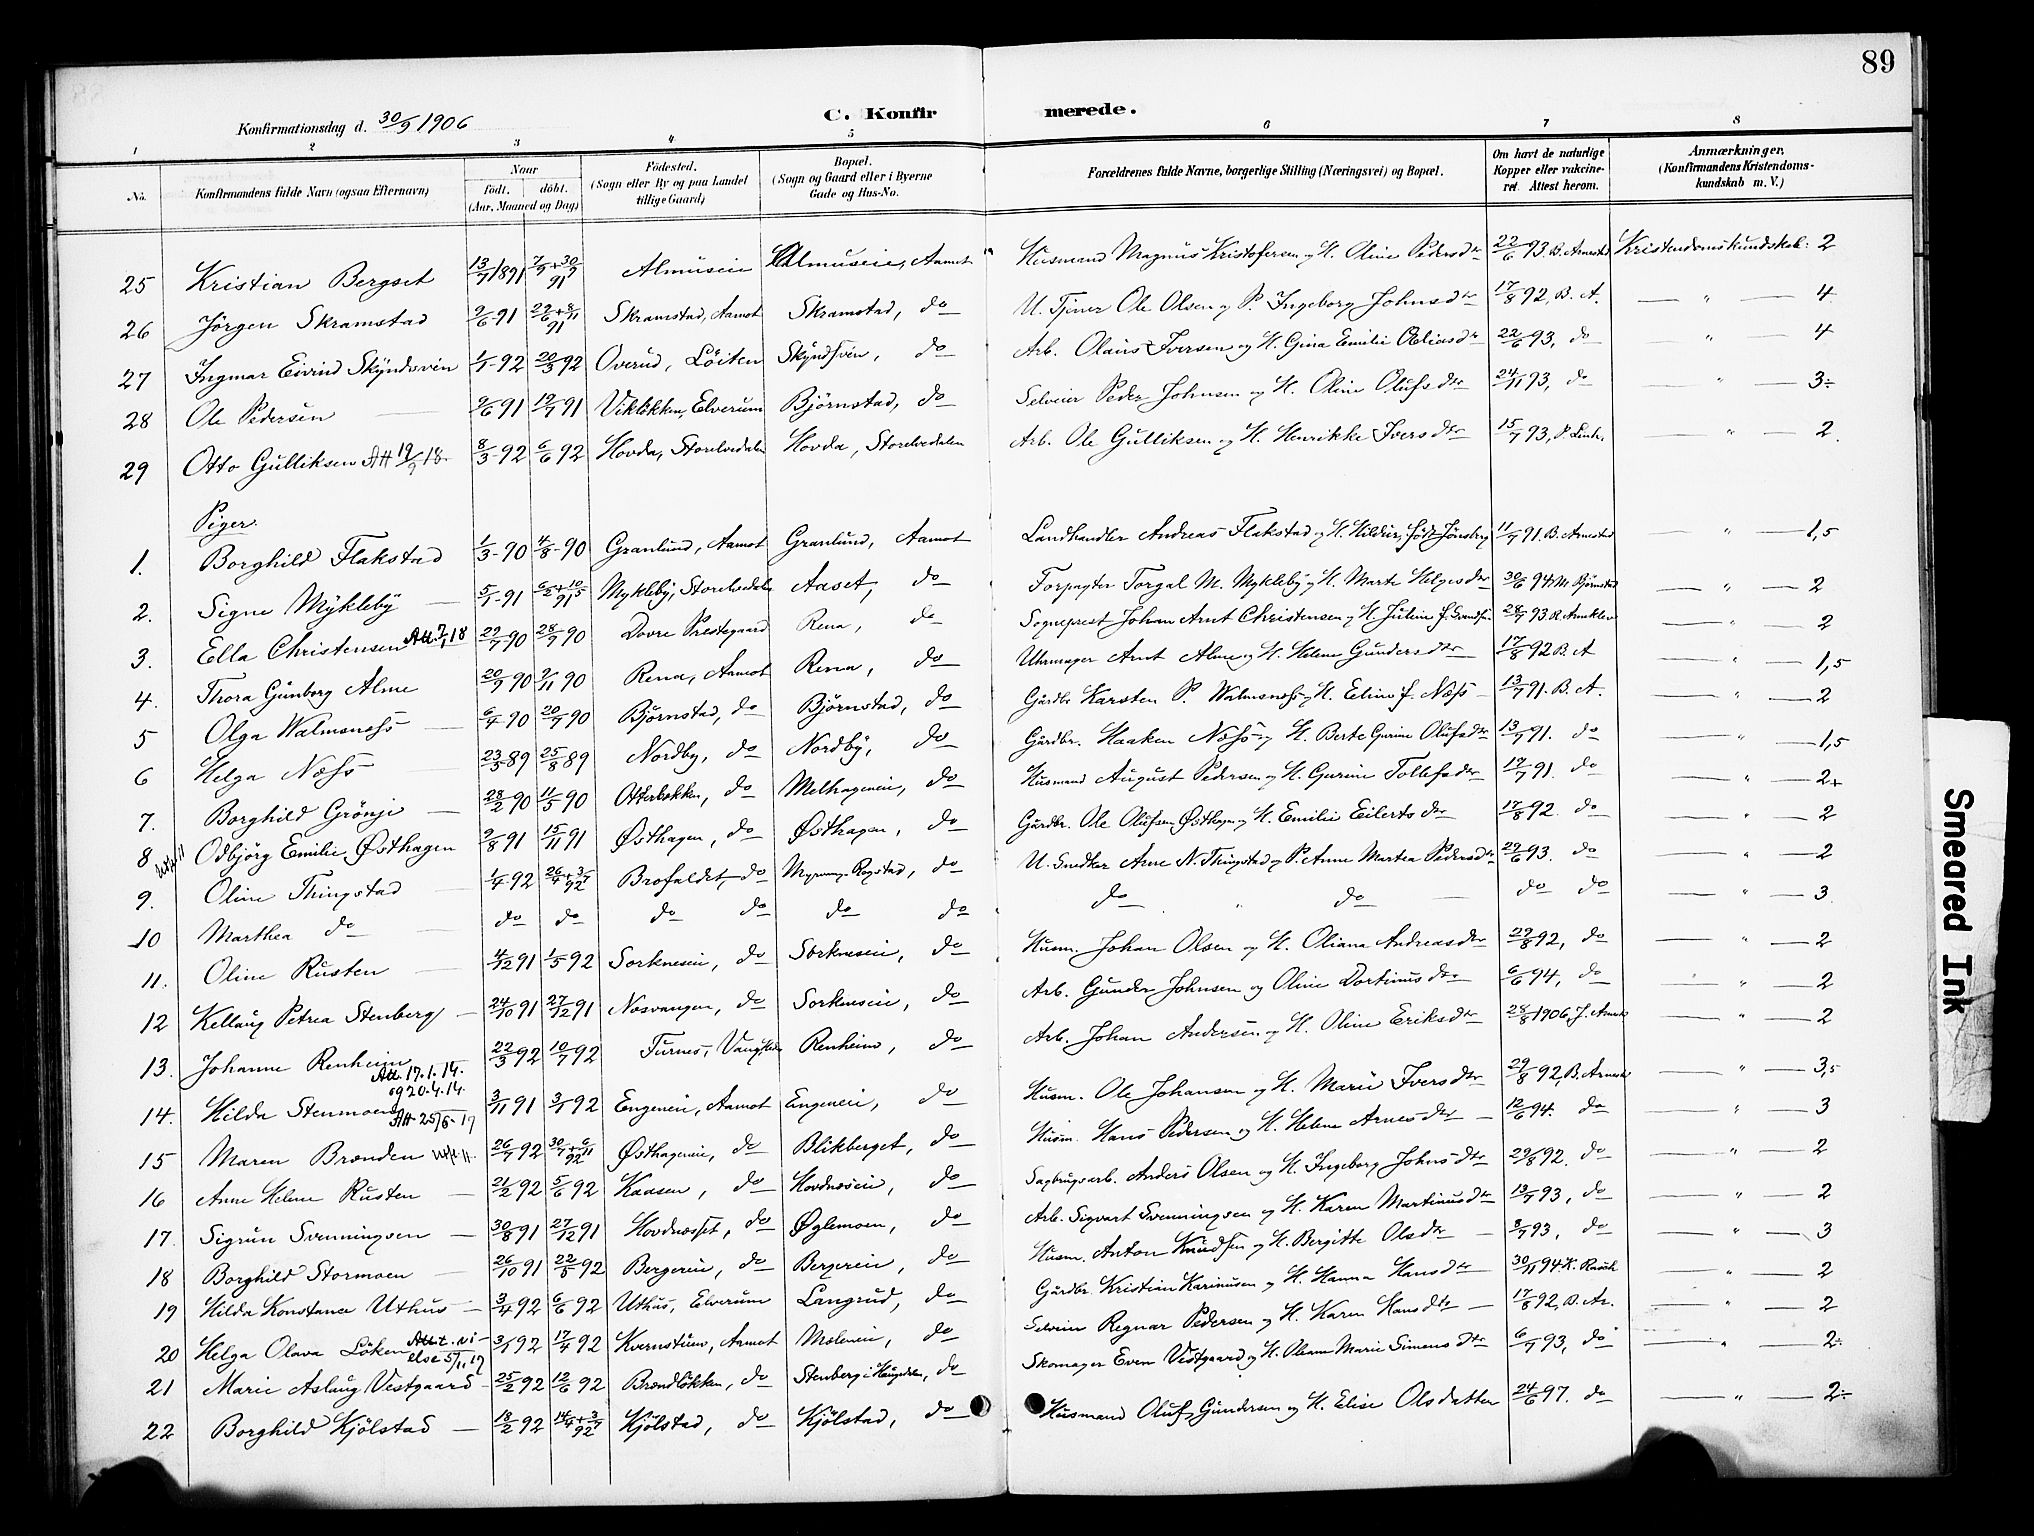 89
Konfirmationsdag d. 30/9 1906
C. Konfirmerede.
1 2 3 4 5 6 7 8
No. Konfirmandens fulde Navn (ogsaa Efternavn) Naar født. døbt. (Aar, Maaned og Dag) Fødested. (Sogn eller By og paa Landet tillige Gaard) Bopæl. (Sogn og Gaard eller i Byerne Gade og Hus-No. Forældrenes fulde Navne, borgerlige Stilling (Næringsvei) og Bopæl. Om havt de naturlige Kopper eller vaccineret. Attest herom. Anmærkninger. (Konfirmandens Kristendomskundskab m. V.)
25 Kristian Bergset 13/7 1891 7/9 + 30/9 91 Almuseie Almuseie, Aamot Husmand Magnus Kristofersen og H. Oline Pedersdtr 22/6 93. B. Arnestad Kristendomskundskab: 2
26 Jörgen Skramstad 9/6-91 Skramstad, Aamot Skramstad, do U. Tjener Ole Olsen og P. Ingeborg Johnsdtr 17/8 92, B. A. — " — 4
27 Ingmar Eivind Skyndsven 1/1-92 20/3 92 Overud, Löiten Skyndsven, do Arb. Olaus Iversen og H. Gina Emilie Eliasdtr 22/6 93, do — " — 4
28 Ole Pedersen 9/6 91 19/7 91 Viklökken, Elverum Björnstad, do Selveier Peder Johnsen og H. Oline Olufsdtr 24/11 93, do — " — 3÷
29 Otto Gulliksen Att 19/9 18. 8/3-92 6/6 92 Hovda, Storelvedalen Hovda, Storelvedalen Arb. Ole Gulliksen og H. Henrikke Iversdtr 15/7 93, P. Linh. — " — 2
Piger.
1. Borghild Flakstad 1/3-90 4/8-90 Granlund, Aamot Granlund, Aamot Landhandler Andreas Flakstad og H. Hildur, født Jönsberg 11/7 91 B. Arnestad — " — 1,5
2. Signe Mykleby 5/1-91 Mykleby, Storelvedalen Aaset, do Forpagter Torgal M. Mykleby og H. Marte Helgesdtr 30/6 94, M. Björnstad — " — 2
3. Ella Christensen Att. 7/1 18 29/7-90 28/9 90 Dovre Prestegaard Rena, do Sogneprest Johan Arnt Christensen og H. Juline f. Svendsen 28/7 93 — " — 2
4. Thora Gunborg Alme 20/9 90 2/11 90 Rena, Aamot Rena, do Uhrmager Arnt Alme og H. Helene Gundersdtr 17/8 92 B. A — " — 1,5
5 Olga Walmsness 6/4-90 20/7 90 Björnstad, do Björnstad, do Gårdbr. Karsten P. Walmsness og H. Eline f. Næss 13/7 91. B. A. — " — 2
6 Helga Næss 23/5 89 25/8 89 Nordby, do Nordby, do Gårdbr. Haaken Næss og H. Berte Gurine Olufsdtr 13/7 91. do — " — 1,5
7. Borghild Grönje 28/2 90 11/5 90 Otterbekken, do Melhageneie, do Husmand August Pedersen og H. Gurine Tollefsdtr 17/7 91. do — " — 2+
8 Odbjörg Emilie Østhagen 9/8-91 15/11 91 Østhagen, do Østhagen, do Gårdbr. Ole Olufsen Østhagen og H. Emilie Eilertsdtr 17/8 92. do — " — 2
9. Oline Thingstad 1/4 92 26/4 + 3/7 92 Brofaldet, do Myrmug. Rogstad, do U. Snedker Arne N. Thingstad og P. Anne Martea Pedersdtr 29/6 93. do — " — 2
10 Marthea do do do do do do do do do do do — " — 3
11. Oline Rusten 4/12 91 1/5 92 Sorkneseie, do Sorkneseie, do Husm. Johan Olsen og H. Oliana Andreasdtr 29/8 92, do — " — 2
12 Kellaug Petrea Stenberg 24/10 91 27/12 91 Nosvangen, do Sorkneseie, do Arb. Gunder Johnsen og Oline Dortinusdtr 6/6 94, do — " — 2
13. Johanne Renheim 22/3 92 10/7 92 Furnes, Vang, Hedm Renheim, do Arb. Johan Andersen og H. Oline Eriksdtr 28/8 1906, J. Arnest. — " — 2
Att. 17.1.14. og 20.4.14.
14. Hilda Stenmoen Att 25/5-17 3/11 91 3/1 92 Engeneie, Aamot Engeneie, do Husm. Ole Johansen og H. Marie Iversdtr 29/8 92, B. Arnest — " — 3,5
15 Maren Brænden 26/7 92 Østhageneie, do Blikberget, do Husm. Hans Pedersen og H. Helene Arnesdtr 12/6 94. do — " — 3
16 Anne Helene Rusten 21/2 92 5/6 92 Kaasen, do Hovdnæseie, do Sagbrugsarb. Anders Olsen og H. Ingeborg Johnsdtr 29/8 92. do — " — 2
17. Sigrun Svenningsen 30/8 91 27/12 91 Hovdnæsset, do Øglemoen, do Arb. Sigvart Svenningsen og H. Karen Martinusdtr 13/7 93, do — " — 2
18 Borghild Stormoen 26/10 91 22/5 92 Bergereie, do Bergereie, do Husm. Anton Knudsen og H. Bergitte Olsdtr 3/7 93, do — " — 3
19 Hilda Konstance Uthus 3/4 92 6/6 92 Uthus, Elverum Langrud, do Gårdbr. Kristian Karinusen og H. Hanna Hansdtr 30/11 94 — " — 2
20 Helga Olava Löken Att. t. vielse 5/11 17 3/1 92 17/4 92 Kvernstuen, Aamot Meleneie, do Selveier Regnar Pedersen og H. Karen Hansdtr 17/8 92, B. Ar. — " — 2
21 Marie Aslaug Vestgaard 25/2 92 12/6 92 Brændlökken, do Stenberg i Haugedalen, do Skomager Even Vestgaard og H. Oleane Marie Simensdtr 6/7 93, do — " — 2÷
22 Borghild Kjölstad 18/2 92 14/4 + 3/7 92 Kjölstad, do Kjölstad, do Husmand Oluf Gundersen og H. Elise Olsdatter 24/6 97. do — " — 2÷
Smeared Ink